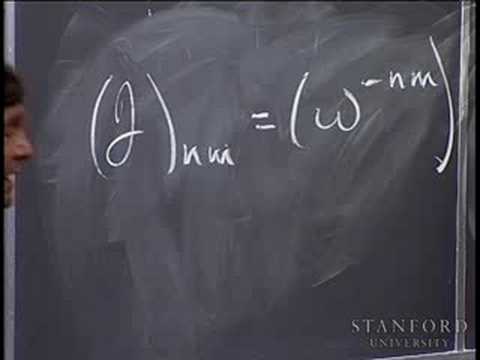 (ℱ)ₙₘ = (ω⁻ⁿᵐ)
STANFORD
UNIVERSITY